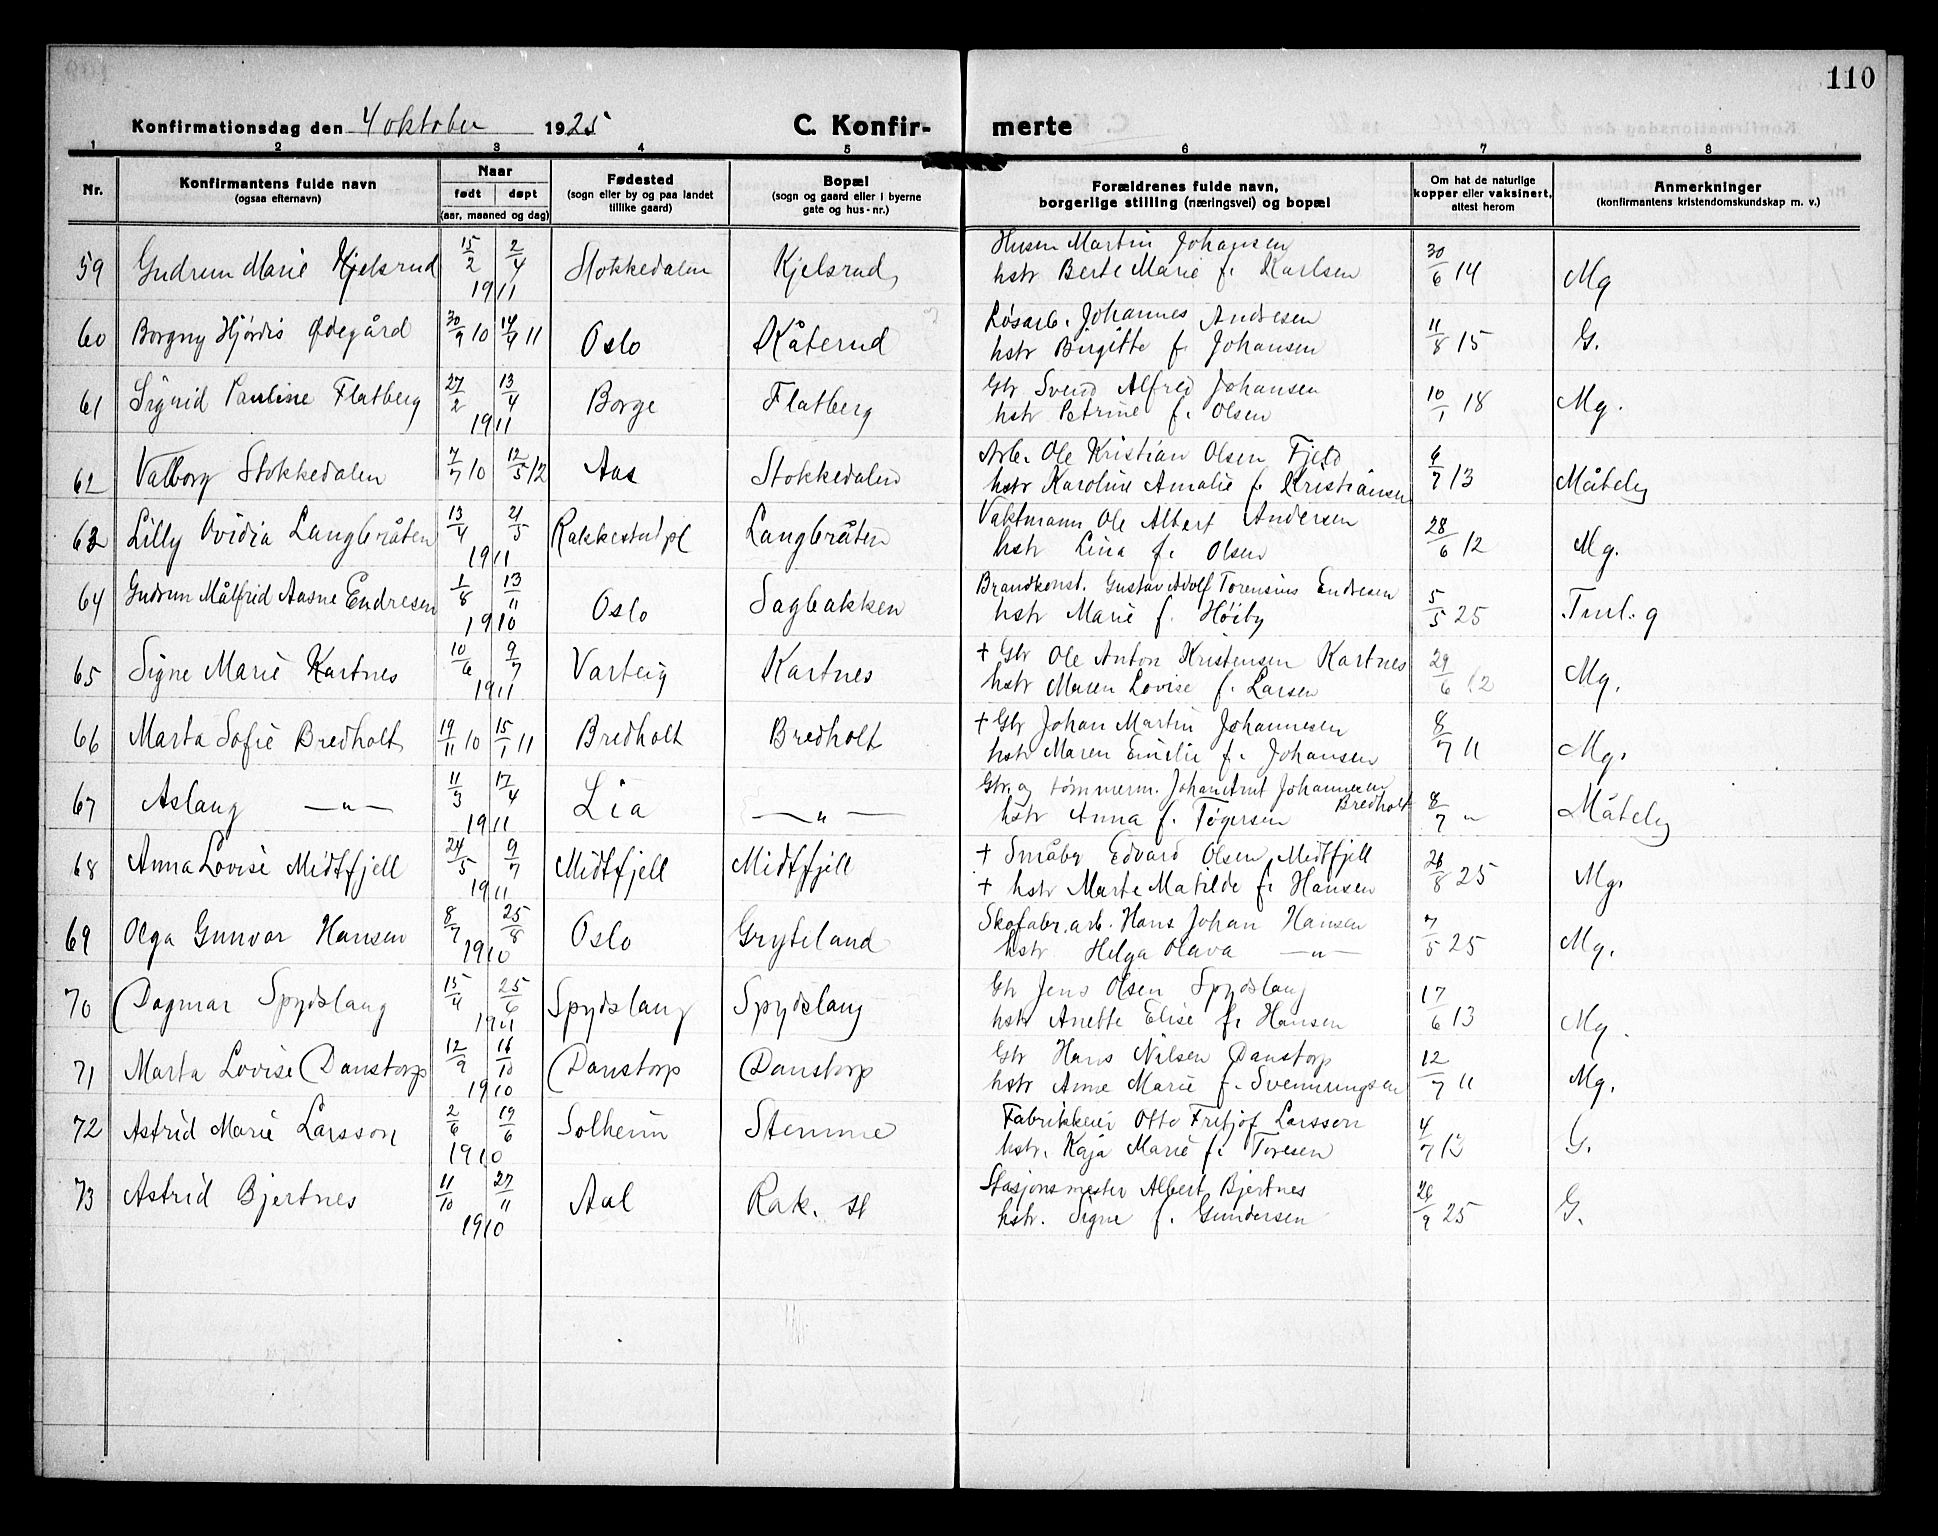 110
Konfirmationsdag den 4 oktober 1925 C. Konfir- merte
1 2 3 4 5 6 7 8
Nr. Konfirmantens fulde navn (ogsaa efternavn) Naar født døpt (aar, maaned og dag) Fødested (sogn eller by og paa landet tillike gaard) Bopæl (sogn og gaard eller i byerne gate og hus-nr.) Forældrenes fulde navn, borgerlige stilling (næringsvei) og bopæl Om hat de naturlige kopper eller vaksinert, attest herom Anmerkninger (konfirmantens kristendomskundskap m. v.)
59 Gudrun Marie Kjelsrud 15/2 2/4 1911 Stokkedalen Kjelsrud Husm Martin Johansen
hstr Berte Marie f. Karlsen 30/6 14 Mg
60 Borgny Hjørdis Ødegård 30/9 10 14/4 11 Oslo Kåterud Løsarb. Johannes Andresen
hstr Birgitte f. Johansen 11/8 15 G.
61 Sigrid Pauline Flatberg 27/2 13/4 1911 Borge Flatberg Gbr Svend Alfred Johansen
hstr Petrine f. Olsen 10/1 18 Mg.
62 Valborg Stokkedalen 7/7 10 12/5 12 Aas Stokkedalen Arb. Ole Kristian Olsen Fjeld
hstr Karoline Amalie f. Kristiansen 6/7 13 Måtely
63 Lilly Ovidia Langbråten 13/4 21/5 1911 Rakkestad pl Langbråten Vaktmann Ole Albert Andersen
hstr Lina f. Olsen 28/6 12 Mg.
64 Gudrun Målfrid Aasne Endresen 1/8 13/11 1910 Oslo Sagbakken Brandkonst. Gustav Adolf Torensius Endresen
hstr Marie f. Høiby 5/5 25 Tml. g
65 Signe Marie Kartnes 10/6 9/7 1911 Varteig Kartnes + Gbr Ole Anton Kristensen Kartnes
hstr Maren Lovise f. Larsen 29/6 12 Mg.
66 Marta Sofie Bredholt 19/11 10 15/1 11 Bredholt Bredholt + Gbr Johan Martin Johannesen
hstr Maren Emilie f. Johansen 8/7 11 Mg.
67 Aslaug —"— 11/3 17/4 1911 Lia —"— Gbr. og tømmerm. Johan Arnt Johannesen Bredholt
hstr Anna f. Tøgersen 8/7 " Måtely
68 Anna Lovise Midtfjell 24/5 9/7 1911 Midtfjell Midtfjell + Småbr Edvard Olsen Midtfjell
+ hstr Marte Matilde f. Hansen 26/8 25 Mg.
69 Olga Gunvor Hansen 8/7 25/8 1910 Oslo Gryteland Skofabr.arb. Hans Johan Hansen
hstr Helga Olava —"— 7/5 25 Mg.
70 Dagmar Spydslaug 15/4 25/6 1911 Spydslaug Spydslaug Gbr Jens Olsen Spydslaug
hstr Anette Elise f. Hansen 17/6 13 Mg.
71 Marta Lovise Danstorp 12/9 16/10 1910 Danstorp Danstorp Gbr Hans Nilsen Danstorp
hstr Anne Marie f. Svenningsen 12/7 11 Mg.
72 Astrid Marie Larsson 2/6 19/6 1910 Solheim Stemme Fabrikkeier Otto Fritjof Larsson
hstr. Kaja Marie f. Toresen 4/7 13 G.
73 Astrid Bjertnes 11/10 27/11 1910 Aal Rak. st Stasjonsmester Albert Bjertnes
hstr. Signe f. Gundersen 26/9 25 G.